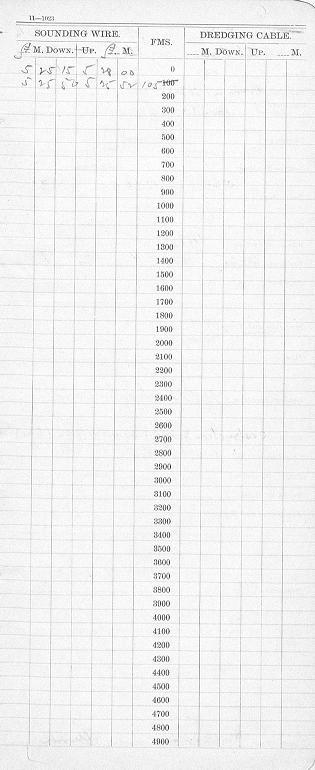 11—1023
SOUNDING WIRE. FMS. DREDGING CABLE.
M. DOWN. UP. M. M. DOWN. UP. M.
5 25 15 5 28 00 0
5 25 50 5 25 52 105 100
200
300
400
500
600
700
800
900
1000
1100
1200
1300
1400
1500
1600
1700
1800
1900
2000
2100
2200
2300
2400
2500
2600
2700
2800
2900
3000
3100
3200
3300
3400
3500
3600
3700
3800
3900
4000
4100
4200
4300
4400
4500
4600
4700
4800
4900